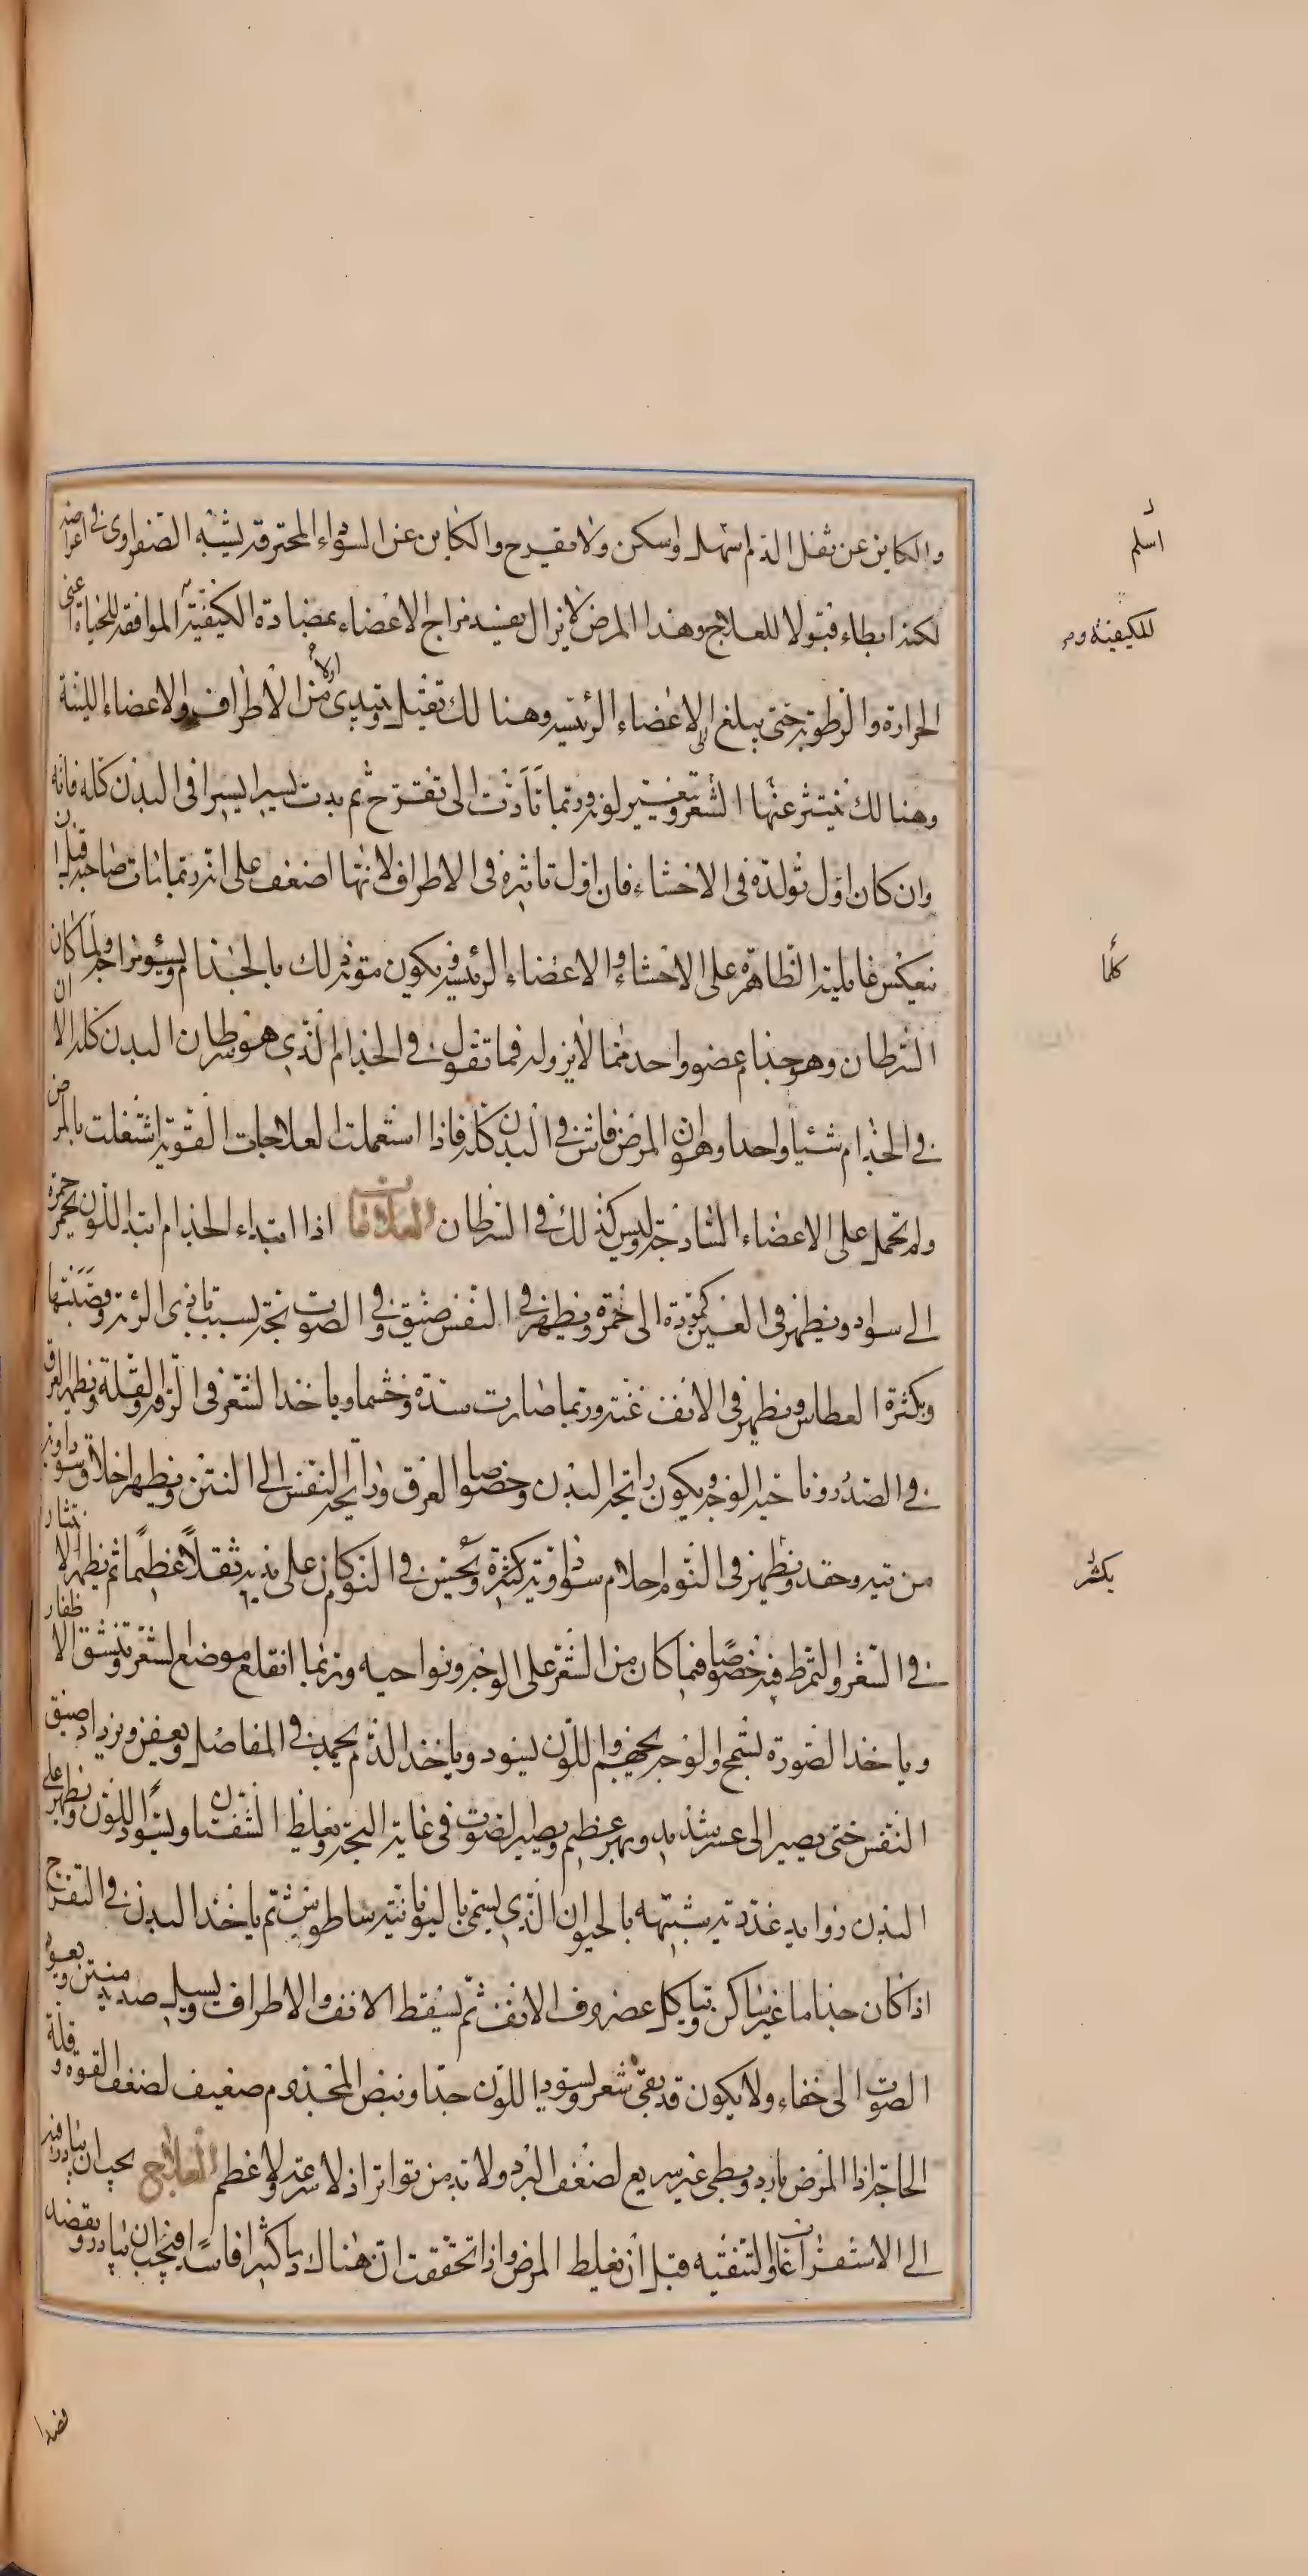 والكاين عن ثفل الدم اسهل واسكن ولا مقيرح والكاين عن السوداء المحترقة يشبه الصفراوى فى اعراضه
لكنه ابطاء قبولا للعلاج وهذا المرض لايزال يفسد مزاج الاعضاء بمضادة الكيفية الموافقة للحياة اعنى
الحرارة والرطوبة حتى يبلغ الى الاعضاء الرئيسية وهنا لك تقتيل ويبتدى اولا من الاطراف والاعضاء اللينة
وهنا لك ينتثر عنها الشعر وتغيير لونه وربما تادت الى تقرح ثم يدب يسيرا يسيرا فى البدن كله فانه
وان كان اول تولده فى الاحشاء فان اول تاثيره فى الاطراف لانها اضعف على انه ربما مات صاحبه قبل ان
ينعكس غايلته الظاهرة على الاحشاء والاعضاء الرئيسية فيكون موته ذلك بالجذام وبسوء مزاجه ولما كان
السرطان وهو جذام عضو واحد مما لا برؤ له فما تقول فى الجذام الذى هو سرطان البدن كله الا ان
فى الجذام شيئا واحدا وهو ان المرض فاش فى البدن كله فاذا استعملت العلاجات القوية اشتغلت بالمرض
ولم تحمل على الاعضاء الساذجة وليس كذلك فى السرطان العلامات اذا ابتداء الجذام ابتدا اللون يحمر حمرة
الى سواد ويظهر فى العين كمودة الى حمرة ويظهر فى النفس ضيق وفى الصوت بحة بسبب تاذى الرئة وقصبتها
وبكثرة العطاس ويظهر فى الانف غنة وربما صارت سدة وخشما وياخذ الشعر فى الرقة والقلة ويظهر العرق
فى الصدر ونواحى الوجه ويكون رايحة البدن وخصوصا العرق ورايحة النفس الى النتن ويظهر اخلاق سوداوية
من تيه وحقد ويظهر فى النوم احلام سوداوية كثيرة ويحس فى النوم كان على بدنه ثقلا عظيما ثم يظهر الانتثار
فى الشعر والتمرط فيه خصوصا فيما كان من الشعر على الوجه ونواحيه وربما انقلع موضع الشعر وتنشق الاظفار
وياخذ الصورة يسمج والوجه يجهم واللون يسود وياخذ الدم يجمد فى المفاصل ويعفن ويزداد ضيق
النفس حتى يصير الى عسر شديد وبهر عظيم ويصير الصوت فى غاية البحة ويغلظ الشفتان ويسود اللون ويظهر على
البدن زوايد غددية يشبهه بالحيوان الذى يسمى باليونانية ساطورس ثم ياخذ البدن فى التقرح
اذا كان جذاما غير ساكن ويتاكل غضروف الانف ثم يسقط الانف والاطراف ويسيل صديد منتن ويعود
الصوت الى خفاء ولا يكون قد بقى شعر ويسود اللون جدا ونبض المجذوم ضعيف لضعف القوة وقلة
الحاجة اذا المرض بارد وبطى غير سريع لضعف البرد ولا بد من تواتر اذ لا سرعة ولا عظم العلاج يجب ان يبادر فيه
الى الاستفراغات والتنقيه قبل ان يغلظ المرض واذا تحققت ان هناك دما كثيرا فاسدا فيجب ان يبادر وبفصد
اسلم
للكيفية
كلما
يكثر
فصدا